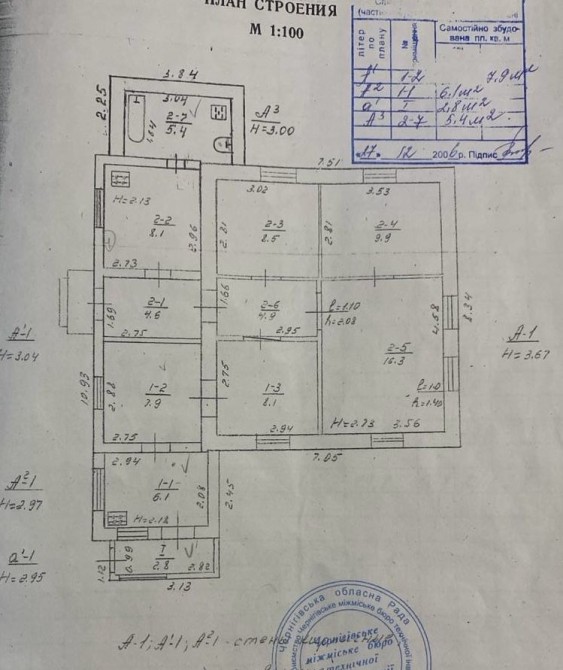 ПЛАН СТРОЕНИЯ
М 1:100
літер по плану
№
Самостійно збудована пл. кв. м
А¹ 1-2 7.9 м²
А² 1-1 6.1 м²
а¹ I 2.8 м²
А³ 2-7 5.4 м²
"27" 12 2006 р. Підпис
3.84
2.25
3.04
2-7
5.4
А³
Н=3.00
7.51
Н=2.13
2-2
8.1
2.96
2.73
3.02
2.81
2-3
8.5
3.53
2.81
2-4
9.9
1.69
2-1
4.6
2.75
1.66
2-6
4.9
2.95
ℓ=1.10
h=2.08
4.58
8.34
2-5
16.3
ℓ=1.0
h=1.40
Н=2.73
3.56
А'-1
Н=3.04
А-1
Н=3.67
10.93
2.88
1-2
7.9
2.75
2.75
1-3
8.1
2.94
7.05
2.94
1-1
6.1
2.08
2.45
Н=2.18
А²-1
Н=2.97
а'-1
Н=2.95
1.12
0.99
I
2.8
2.82
3.13
А-1; А'-1; А²-1 - стены
Чернігівська обласна Рада
Чернігівське
міжміське бюро
технічної